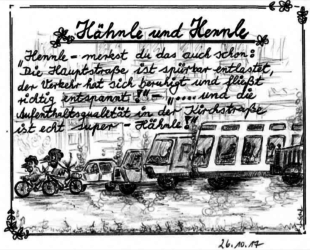 Hähnle und Hennle
"Hennle – merkst du das auch schon:
Die Hauptstraße ist spürbar entlastet,
der Verkehr hat sich beruhigt und fließt
richtig entspannt!" – ".... und die
Aufenthaltsqualität in der Hörchstraße
ist echt super – Hähnle!"
26.10.17